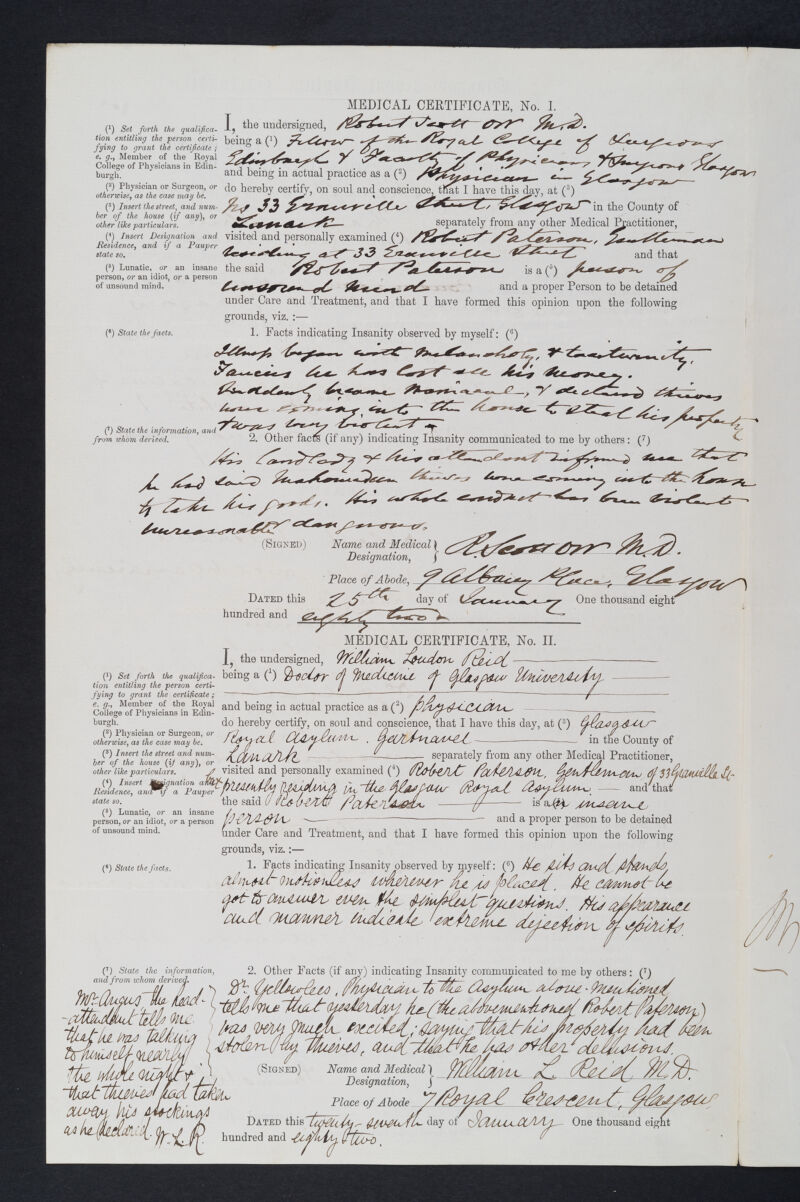 MEDICAL CERTIFICATE, No. I.
I, the undersigned, Robert Scott Orr M.D.
(¹) Set forth the qualifica-
tion entitling the person certi-
fying to grant the certificate;
e. g., Member of the Royal
College of Physicians in Edin-
burgh.
being a (¹) Fellow of the Royal College of Surgeons
Edinburgh & Faculty of Physicians & Surgeons Glasgow
and being in actual practice as a (²) Physician in Glasgow
(²) Physician or Surgeon, or
otherwise, as the case may be.
do hereby certify, on soul and conscience, that I have this day, at (³)
(³) Insert the street, and num-
ber of the house (if any), or
other like particulars.
No 33 Granville Street, Glasgow in the County of
Lanark separately from any other Medical Practitioner,
(⁴) Insert Designation and
Residence, and if a Pauper
state so.
visited and personally examined (⁴) Robert Paterson, Gentleman
residing at 33 Granville Street and that
(⁵) Lunatic, or an insane
person, or an idiot, or a person
of unsound mind.
the said Robert Paterson is a (⁵) person of
unsound mind and a proper Person to be detained
under Care and Treatment, and that I have formed this opinion upon the following
grounds, viz. :—
(⁶) State the facts.
1. Facts indicating Insanity observed by myself: (⁶)
Illness began with melancholy, & taciturnity.
Fancies he has lost all his money.
Suddenly became maniacal, & declared thieves
were coming into the house to steal his property
& was very violent
(⁷) State the information, and
from whom derived.
2. Other facts (if any) indicating Insanity communicated to me by others: (⁷)
His landlady & his attendant informed me that
he had said Mahomedan thieves were coming into the house
to take his goods. His whole conduct has been violent
unreasonable & dangerous.
(SIGNED) Name and Medical Designation, R. Scott Orr M.D.
Place of Abode, 9 Albany Place, Glasgow
DATED this 25th day of January One thousand eight
hundred and eighty two
MEDICAL CERTIFICATE, No. II.
I, the undersigned, William Loudon Reid
(¹) Set forth the qualifica-
tion entitling the person certi-
fying to grant the certificate;
e. g., Member of the Royal
College of Physicians in Edin-
burgh.
being a (¹) Doctor of Medicine of Glasgow University
and being in actual practice as a (²) physician
(²) Physician or Surgeon, or
otherwise, as the case may be.
do hereby certify, on soul and conscience, that I have this day, at (³) Glasgow
(³) Insert the street and num-
ber of the house (if any), or
other like particulars.
Royal Asylum, Gartnavel in the County of
Lanark separately from any other Medical Practitioner,
(⁴) Insert Designation and
Residence, and if a Pauper
state so.
visited and personally examined (⁴) Robert Paterson, Gentleman of 33 Granville St.
presently residing in the Glasgow Royal Asylum. and that
(⁵) Lunatic, or an insane
person, or an idiot, or a person
of unsound mind.
the said Robert Paterson is a (⁵) insane
person and a proper person to be detained
under Care and Treatment, and that I have formed this opinion upon the following
grounds, viz. :—
(⁶) State the facts.
1. Facts indicating Insanity observed by myself: (⁶) He sits and stands
almost motionless wherever he is placed. He cannot be
got to answer even the simplest questions. His appearance
and manner indicate extreme dejection of spirits.
(⁷) State the information,
and from whom derived.
2. Other Facts (if any) indicating Insanity communicated to me by others: (⁷)
Dr. Yellowlees, Physician to the Asylum above-mentioned
tells me that yesterday he (the abovementioned Robert Paterson)
was very much excited; saying that his property had been
stolen by thieves, and that he has other delusions.
Mr. Angus the head-
-attendant tells me
that he was talking
to himself nearly
the whole night &
that thieves had taken
away his stockings
as he declared. W. L. R.
(SIGNED) Name and Medical Designation, William L Reid M.D.
Place of Abode 7 Royal Crescent, Glasgow
DATED this twenty-seventh day of January One thousand eight
hundred and eighty two.